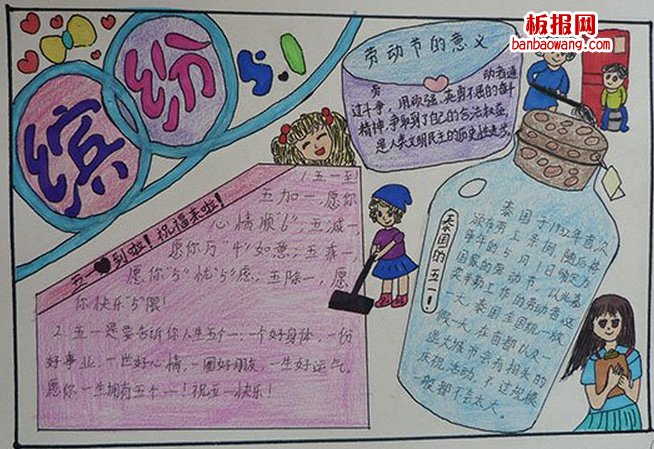 板报网
banbaowang.com
缤纷五一
劳动节的意义
劳动者通
过斗争,用顽强、英勇不屈的奋斗
精神,争取到了自己的合法权益,
是人类文明民主的历史性进步。
五一到啦!祝福来啦!
1.五一到
五加一,愿你
心情顺"6";五减一,
愿你万"4"如意;五乘一,
愿你"5"忧"5"虑;五除一,愿
你快乐"5"限!
2.五一是要告诉你人生五个一:一个好身体,一份
好事业,一世好心情,一圈好朋友,一生好运气。
愿你一生拥有五个一!祝五一快乐!
泰国的五一!
泰国于1932年首次
颁布劳工条例,随后将
每年的5月1日确定为
国家的劳动节,以此慕
奖辛勤工作的劳动者。这
一天,泰国全国统一放
假一天,在首都以及一
些大城市会有相关的
庆祝活动,不过规模
一般都不会太大。